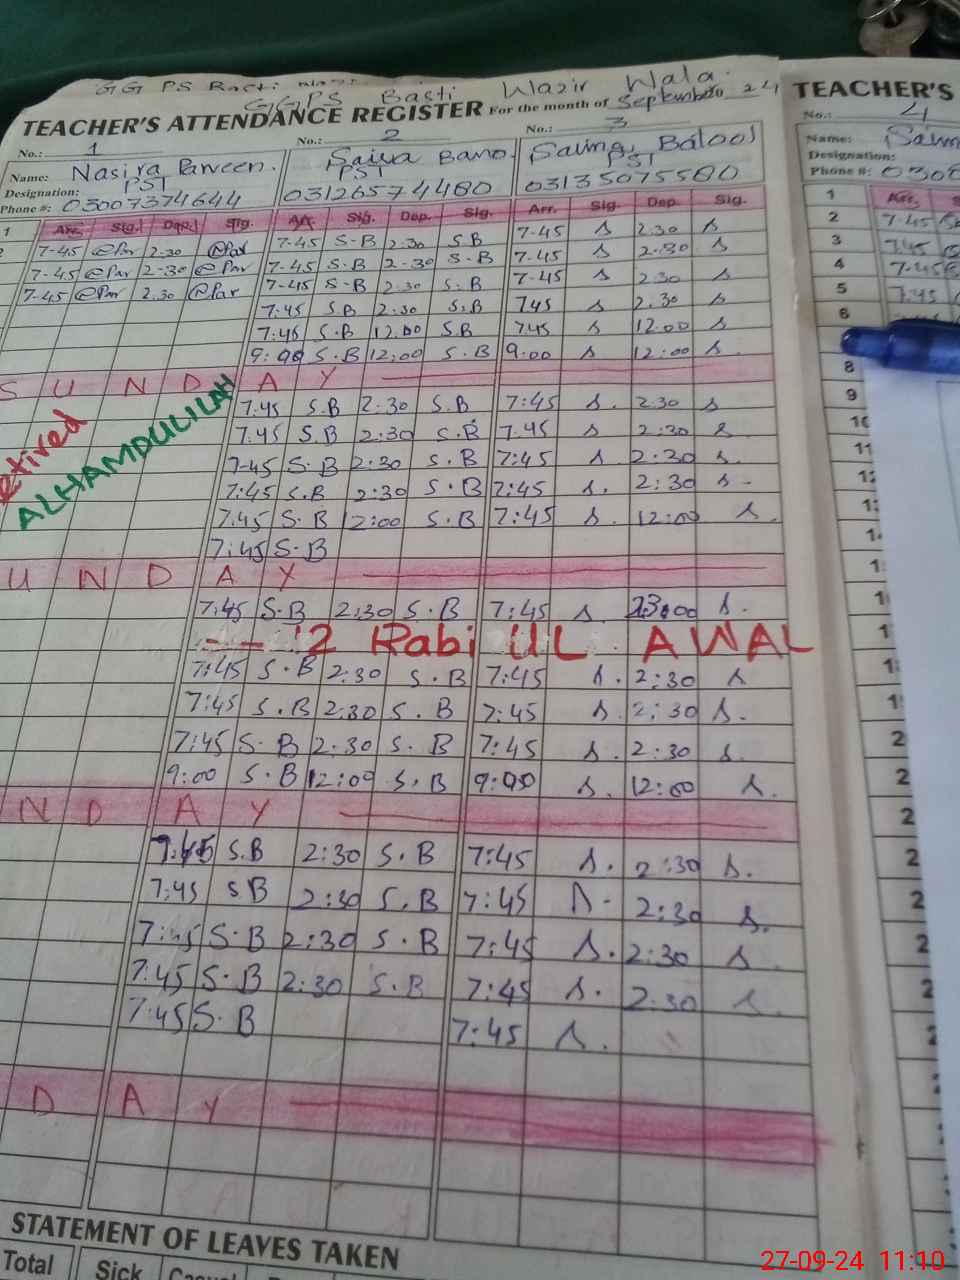 GGPS Basti Wazir Wala
TEACHER'S ATTENDANCE REGISTER For the month of September 24
No.: 1 No.: 2 No.: 3
Name: Nasira Parveen. Saira Bano.
Designation: PST PST PST
Phone #: 03007374644 03126574480 03135075580
Arr. Sig. Dep. Sig. Arr. Sig. Dep. Sig. Arr. Sig. Dep. Sig.
1 7-45 @Par 2.30 @Par 7-45 S-B 2.30 S.B 7-45 s 2.30 s
7-45 @Par 2-30 @Par 7-45 S.B 2-30 S.B 7.45 s 2.30 s
7-45 @Par 2.30 @Par 7-45 S-B 2.30 S.B 7-45 s 2.30 s
7:45 S.B 2:30 S.B 745 s 2.30 s
7:45 S.B 12.00 S.B 7.45 s 12.00 s
9:00 S.B 12:00 S.B 9:00 s 12:00 s.
SUNDAY
7:45 S.B 2:30 S.B 7:45 s. 2.30 s
7.45 S.B 2:30 S.B 7.45 s 2:30 s.
7-45 S.B 2:30 S.B 7:45 s. 2:30 s.
7:45 S.B 2:30 S.B 7:45 s. 2:30 s-
7:45 S.B 12:00 S.B 7:45 s. 12:00 s.
7:45 S-B
ALHAMDULILAH
UNDAY
7:45 S.B 2:30 S.B 7:45 s. s.
12 Rabi UL AWAL
7:45 S.B 2:30 S.B 7:45 s. 2:30 s
7:45 S.B 2:30 S.B 7:45 s. 2:30 s.
7:45 S.B 2:30 S.B 7:45 s. 2:30 s.
9:00 S.B 12:00 S.B 9:00 s. 12:00 s.
NDAY
7:45 S.B 2:30 S.B 7:45 s. 2:30 s.
7:45 S.B 2:30 S.B 7:45 s. 2:30 s.
7:45 S.B 2:30 S.B 7:45 s. 2:30 s.
7:45 S.B 2:30 S.B 7:45 s. 2:30 s.
7:45 S.B 7:45 s.
DAY
STATEMENT OF LEAVES TAKEN
Total Sick
TEACHER'S
No.: 4
Name:
Designation:
Phone #:
Arr.
1
2 7-45
3 7.45
4 7-45
5 7.45
6
8
9
10
11
27-09-24 11:10